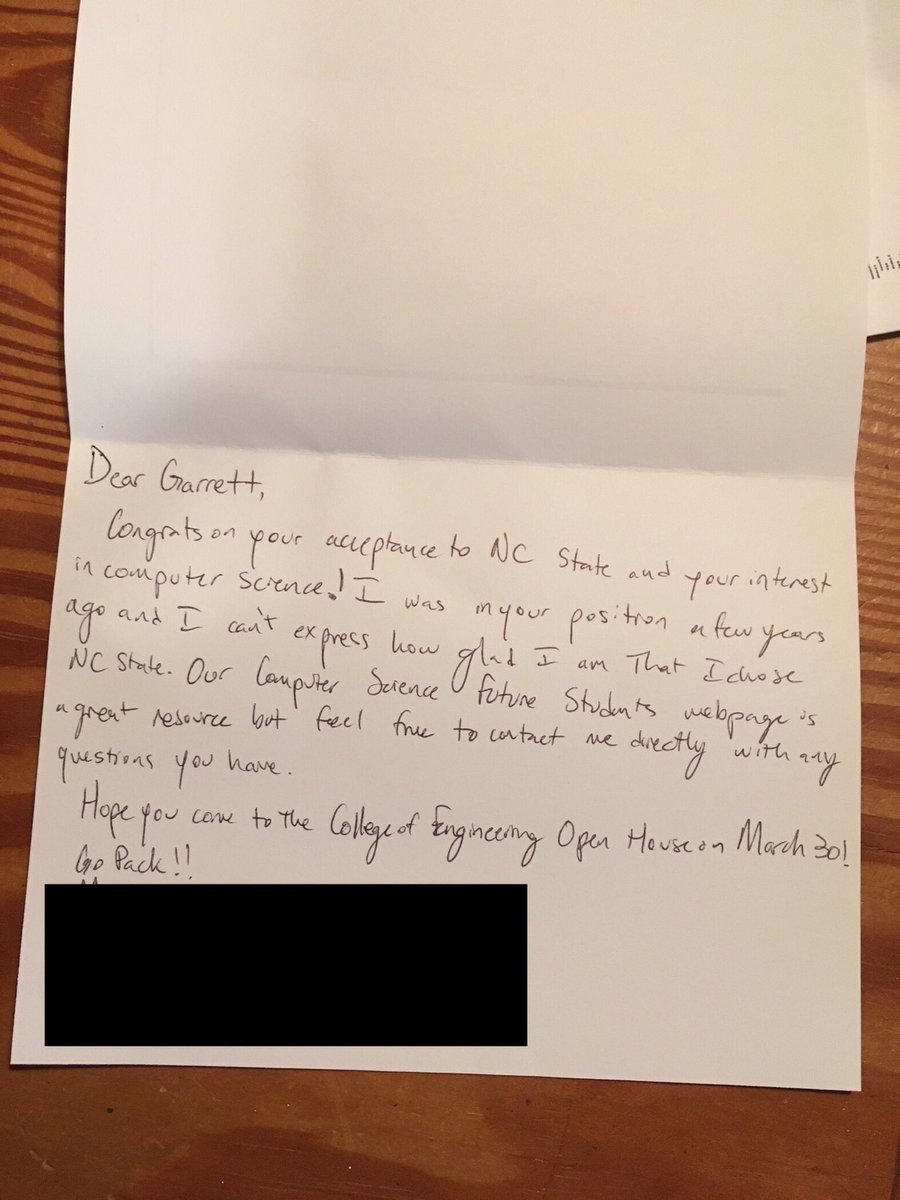 Dear Garrett,
Congrats on your acceptance to NC State and your interest
in computer science! I was in your position a few years
ago and I can't express how glad I am that I chose
NC State. Our Computer Science Future Students webpage is
a great resource but feel free to contact me directly with any
questions you have.
Hope you come to the College of Engineering Open House on March 30!
Go Pack!!